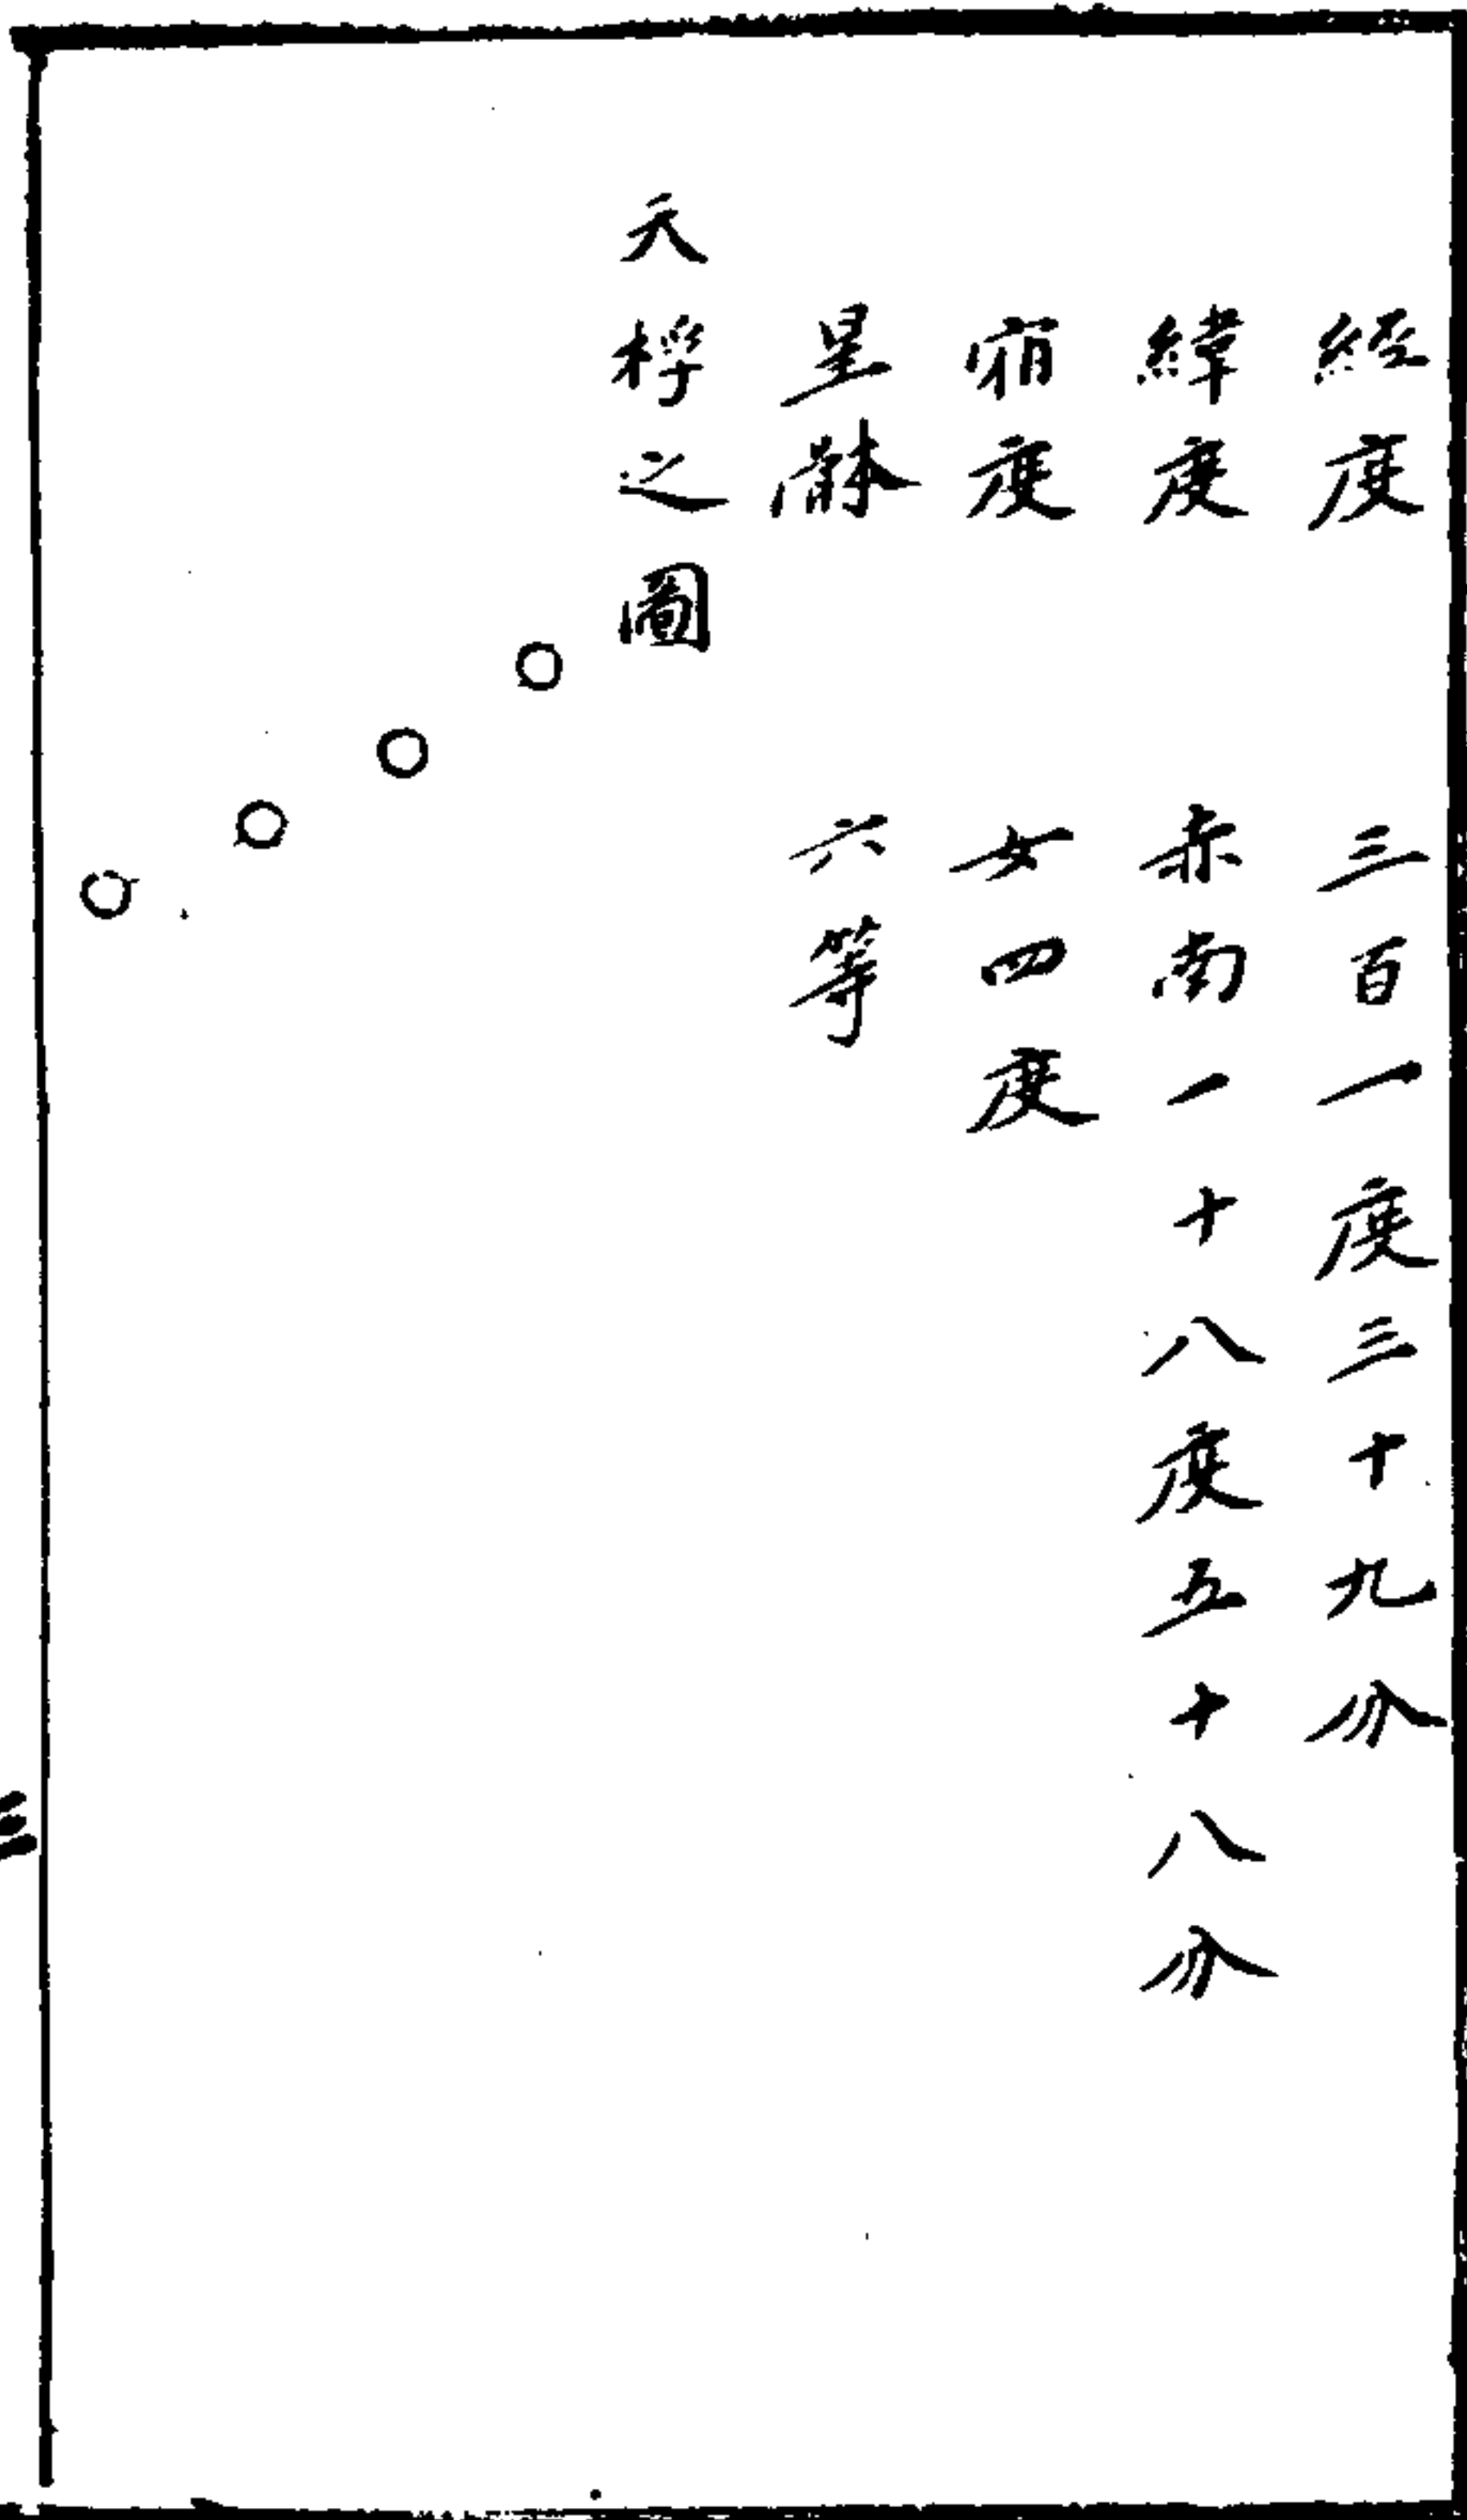 經度　三百一度三十九分
緯度　赤南一十八度五十八分
宿度　女四度
星體　六等
天桴之圖